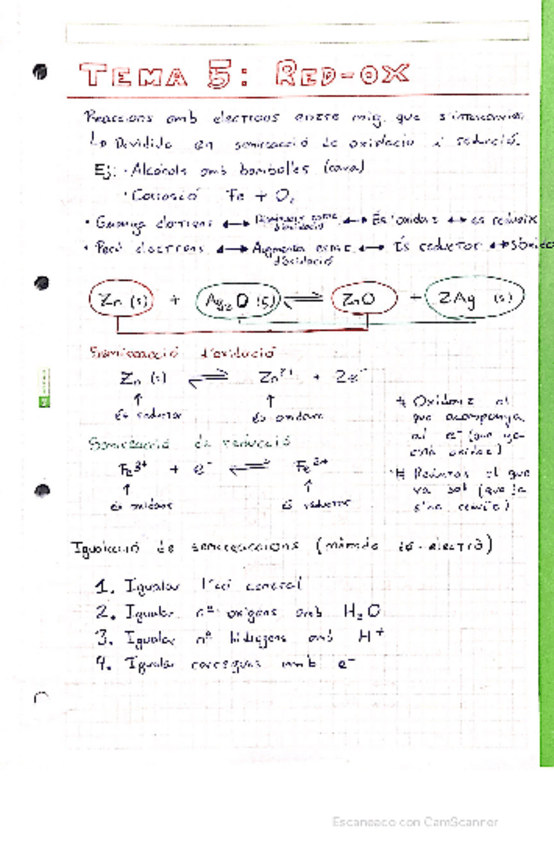 TEMA 5: RED-OX
Reaccions amb electrons entre mig que s'intercanvien
↳ Dividida en semireacció de oxidació i reducció.
Ej: · Alcohols amb bombolles (cava)
· Corrosió Fe + O₂
· Guanya electrons ↔ Disminueix estat d'oxidació ↔ És oxidant ↔ es redueix
· Perd electrons ↔ Augmenta estat d'oxidació ↔ És reductor ↔
Zn (s) + Ag₂O (s) ⇌ ZnO + 2Ag (s)
Semireacció d'oxidació
Zn (s) ⇌ Zn²⁺ + 2e⁻
↑ ↑
és reductor és oxidant
Semireacció de reducció
Fe³⁺ + e⁻ ⇌ Fe²⁺
↑ ↑
és oxidant és reductor
* Oxidant el
que acompanya
al e⁻ (que ja
està oxidat)
* Reductor el que
va sol (que ja
Igualació de semireaccions (mètode ió-electró)
1. Igualar general
2. Igualar nº oxigens amb H₂O
3. Igualar nº hidrogens amb H⁺
4. Igualar carregues amb e⁻
Escaneado con CamScanner